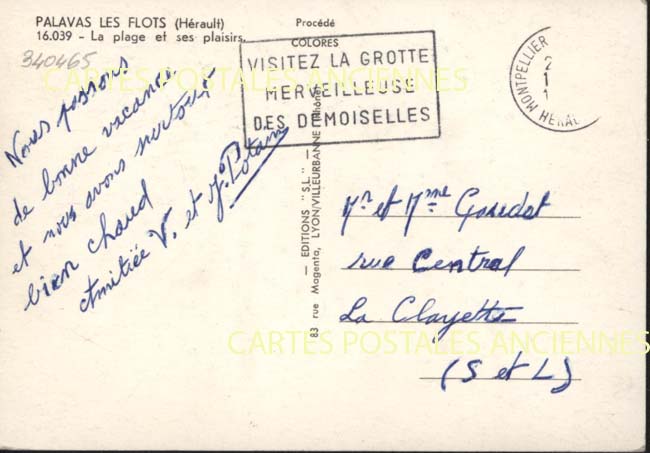 PALAVAS LES FLOTS (Hérault)
16.039 - La plage et ses plaisirs.
340465
Procédé
COLORES
VISITEZ LA GROTTE
MERVEILLEUSE
DES DEMOISELLES
MONTPELLIER
2
1
1
HERAU
CARTES POSTALES ANCIENNES
Nous passons
de bonne vacance
et nous avons surtout
bien chaud
Amitiée V. et J. Potain
— EDITIONS "S.L." —
83 rue Magenta, LYON/VILLEURBANNE (Rhône)
Mr et Mme
rue Central
La Clayette
CARTES POSTALES ANCIENNES
(S et L)